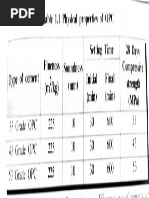 Table 1.1 Physical properties of OPC
Type of cement
Fineness (m²/kg)
Soundness (mm)
Setting Time
Initial (mins)
Final (mins)
28 Days Compressive strength (MPa)
33 Grade OPC 225 10 30 600 33
43 Grade OPC 225 10 30 600 43
53 Grade OPC 225 10 30 600 53